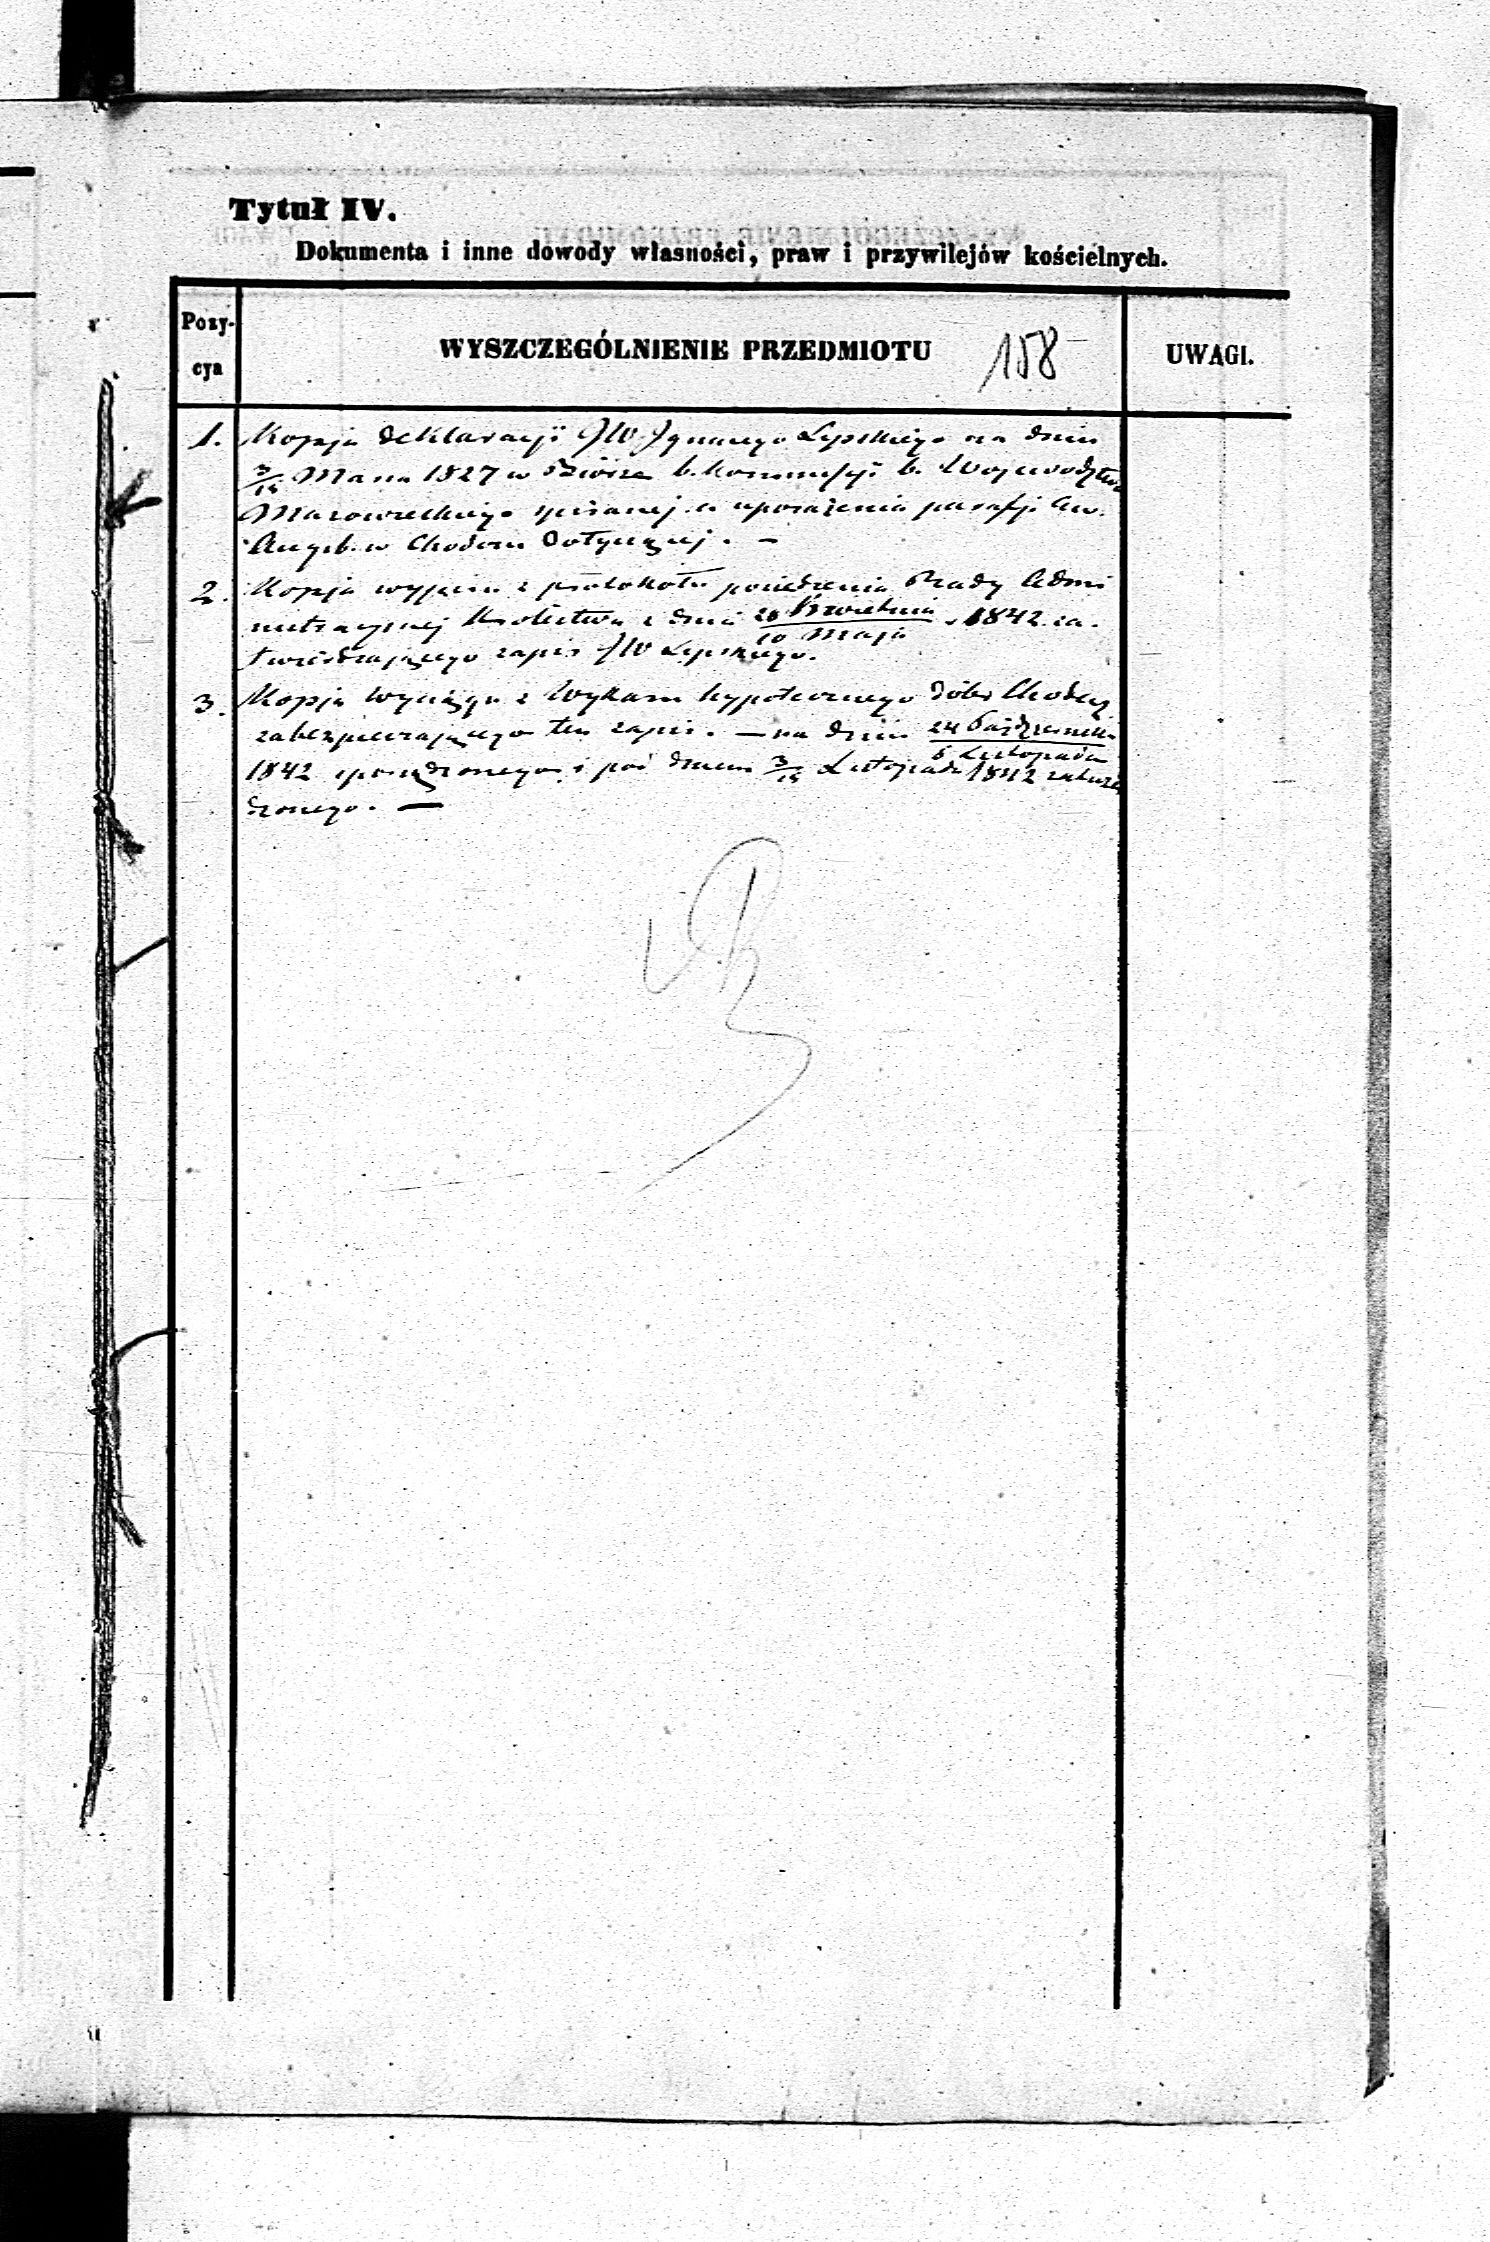 Tytuł IV.
Dokumenta i inne dowody własności, praw i przywilejów kościelnych.
Pozy-
cya
WYSZCZEGÓLNIENIE PRZEDMIOTU
158
UWAGI.
1. Kopja deklaracji JW Ignacego Lipskiego na dniu
3/15 Marca 1827 w Biórze b. Kommissyi b. Województwa
Mazowieckiego spisanej a uposażenia parafji Ew.
Augsb. w Chodczu dotyczącej. —
2. Kopja wypisu z protokołu posiedzenia Rady Admi
nistracyjnej Królestwa z dnia 28 Kwietnia / 10 Maja 1842 za-
twierdzającego zapis JW Lipskiego.
3. Kopja Wyciągu z Wykazu hypotecznego dóbr Chodecz
zabezpieczającego ten zapis. — na dniu 24 Października / 5 Listopada
1842 sporządzonego i pod dniem 3/15 Listopada 1842
dzonego. —